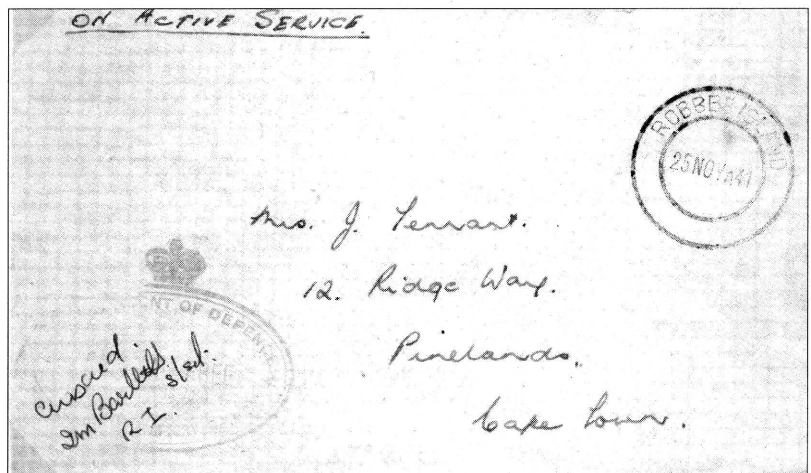 ON ACTIVE SERVICE.
ROBBEN ISLAND
25 NOV 1941
Mrs. J. Tennant.
12. Ridge Way.
Pinelands.
Cape Town.
NT OF DEFEN
Censored
R I.